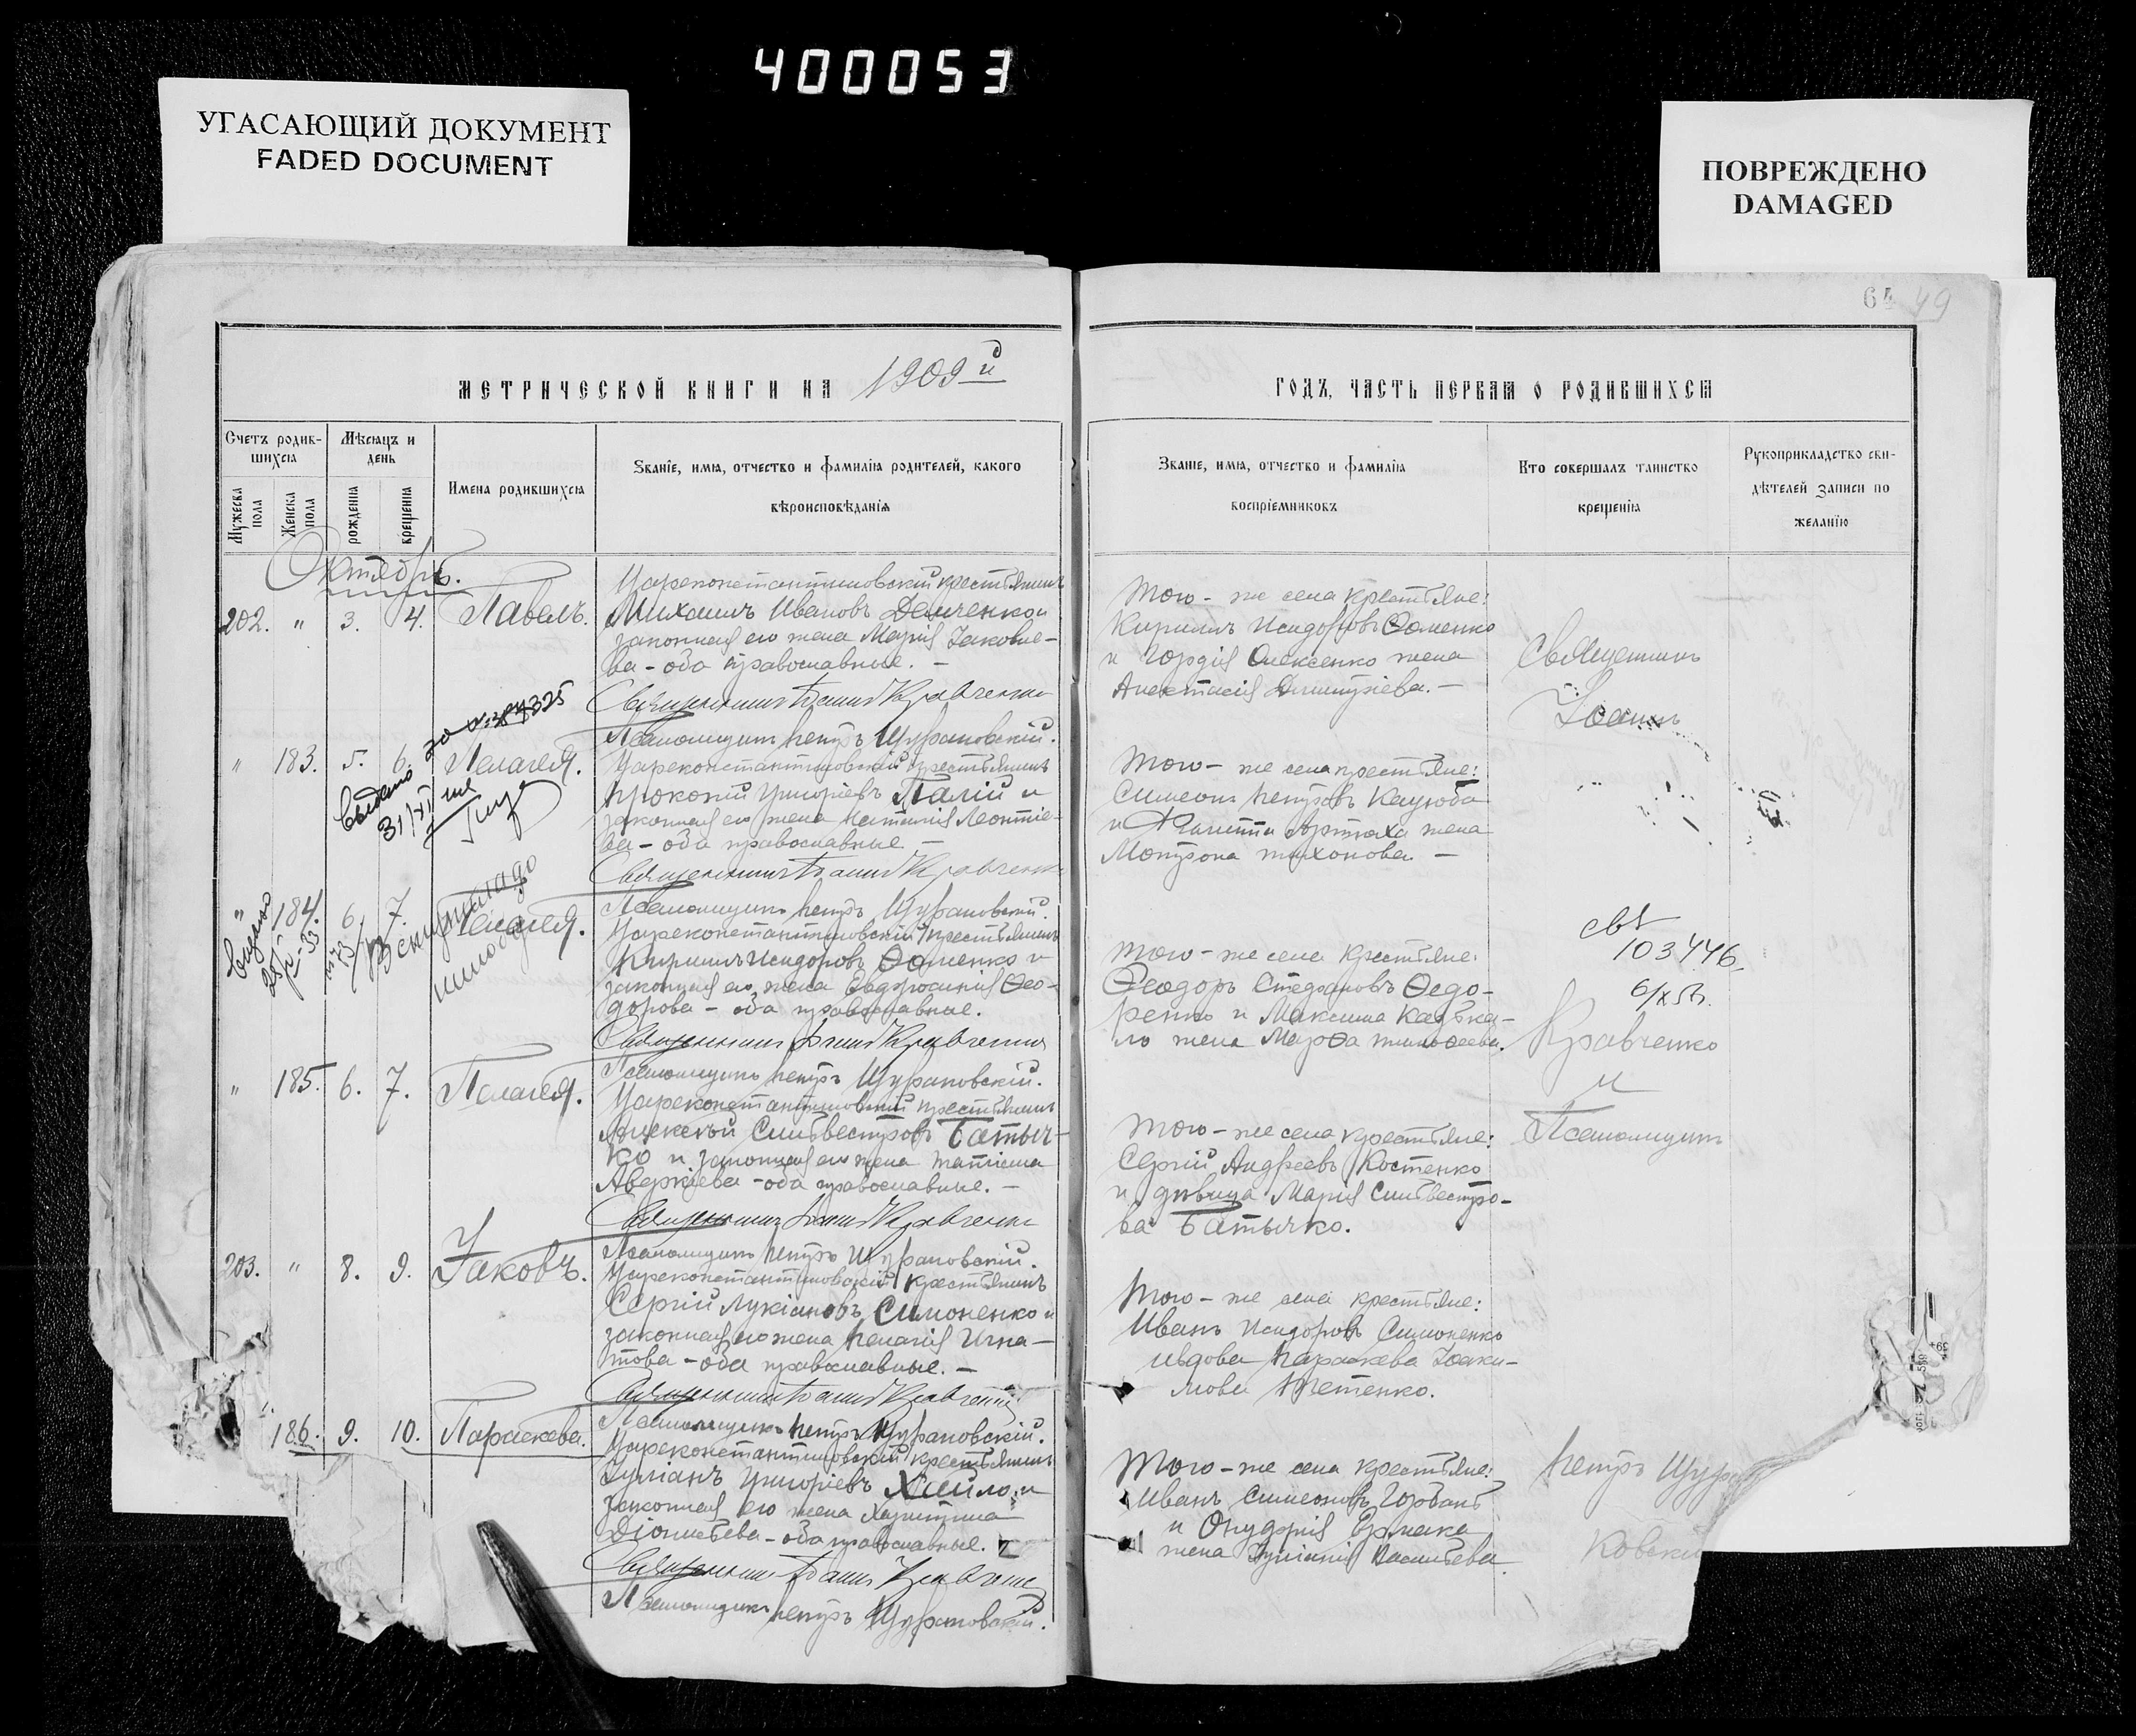 400053
УГАСАЮЩИЙ ДОКУМЕНТ
FADED DOCUMENT
ПОВРЕЖДЕНО
DAMAGED
64 49
МЕТРИЧЕСКОЙ КНИГИ НА 1909й
ГОДЪ, ЧАСТЬ ПЕРВАЯ О РОДИВШИХСЯ
Счетъ родив-
шихся
Мѣсяцъ и
день
Мужеска пола
Женска пола
рожденія
крещенія
Имена родившихся
Званіе, имя, отчество и фамилія родителей, какого
вѣроисповѣданія
Званіе, имя, отчество и фамилія
воспріемниковъ
Кто совершалъ таинство
крещенія
Рукоприкладство сви-
дѣтелей записи по
желанію
Октябрь.
202. " 3. 4. Павелъ.
Цареконстантиновскій крестьянинъ
Михаилъ Ивановъ Демченко и
законная его жена Марія Іаковле-
ва - оба православные. -
Священникъ Іоаннъ Кравченко
Псаломщикъ Петръ Щурановскій.
Того - же села крестьяне:
Кириллъ Исидоровъ Ѳоменко
и Гордія Олексенко жена
Анастасія Димитріева. -
" 183. 5. 6. Пелагея.
Выдано
31/XII
Цареконстантиновскій крестьянинъ
Прокопій Григоріевъ Палій и
законная его жена Наталія Леонтіе-
ва - оба православные -
Священникъ Іоаннъ Кравченко
Псаломщикъ Петръ Щурановскій.
Того - же села крестьяне:
Симеонъ Петровъ Кацюба
и Филиппа Артюха жена
Матрона Тихонова. -
" 184. 6. 7. Пелагея.
Выдано
Цареконстантиновскій крестьянинъ
Кириллъ Исидоровъ Ѳоменко и
законная его жена Евдокія Ѳео-
дорова - оба православные.
Священникъ Іоаннъ Кравченко
Псаломщикъ Петръ Щурановскій.
Того - же села крестьяне:
Ѳеодоръ Стефановъ Ѳедо-
ренко и Максима
жена Марѳа Тимоѳеева.
" 185. 6. 7. Пелагея.
Цареконстантиновскій крестьянинъ
Алексѣй Сильвестровъ Батыч-
ко и законная его жена Татіана
Аверкіева - оба православные. -
Священникъ Іоаннъ Кравченко
Псаломщикъ Петръ Щурановскій.
Того - же села крестьяне:
Сергій Андреевъ Костенко
и дѣвица Марія Сильвестро-
ва Батычко.
203. " 8. 9. Іаковъ.
Цареконстантиновскій крестьянинъ
Сергій Лукіановъ Симоненко и
законная его жена Пелагія Игна-
това - оба православные. -
Священникъ Іоаннъ Кравченко
Псаломщикъ Петръ Щурановскій.
Того - же села крестьяне:
Иванъ Исидоровъ Симоненко
и вдова Параскева Іоаки-
мова
186. 9. 10. Параскева.
Цареконстантиновскій крестьянинъ
Іуліанъ Григоріевъ Хайло и
законная его жена Христина
Діонисіева - оба православные.
Священникъ Іоаннъ Кравченко
Псаломщикъ Петръ Щурановскій.
Того - же села крестьяне:
Иванъ Симеоновъ Горбань
и Онуфрія Ермака
жена Іуліанія Васильева.
Священникъ
Іоаннъ
свѣ
103446
6/X 51.
Кравченко
и
Псаломщикъ
Петръ Щура
ковскій